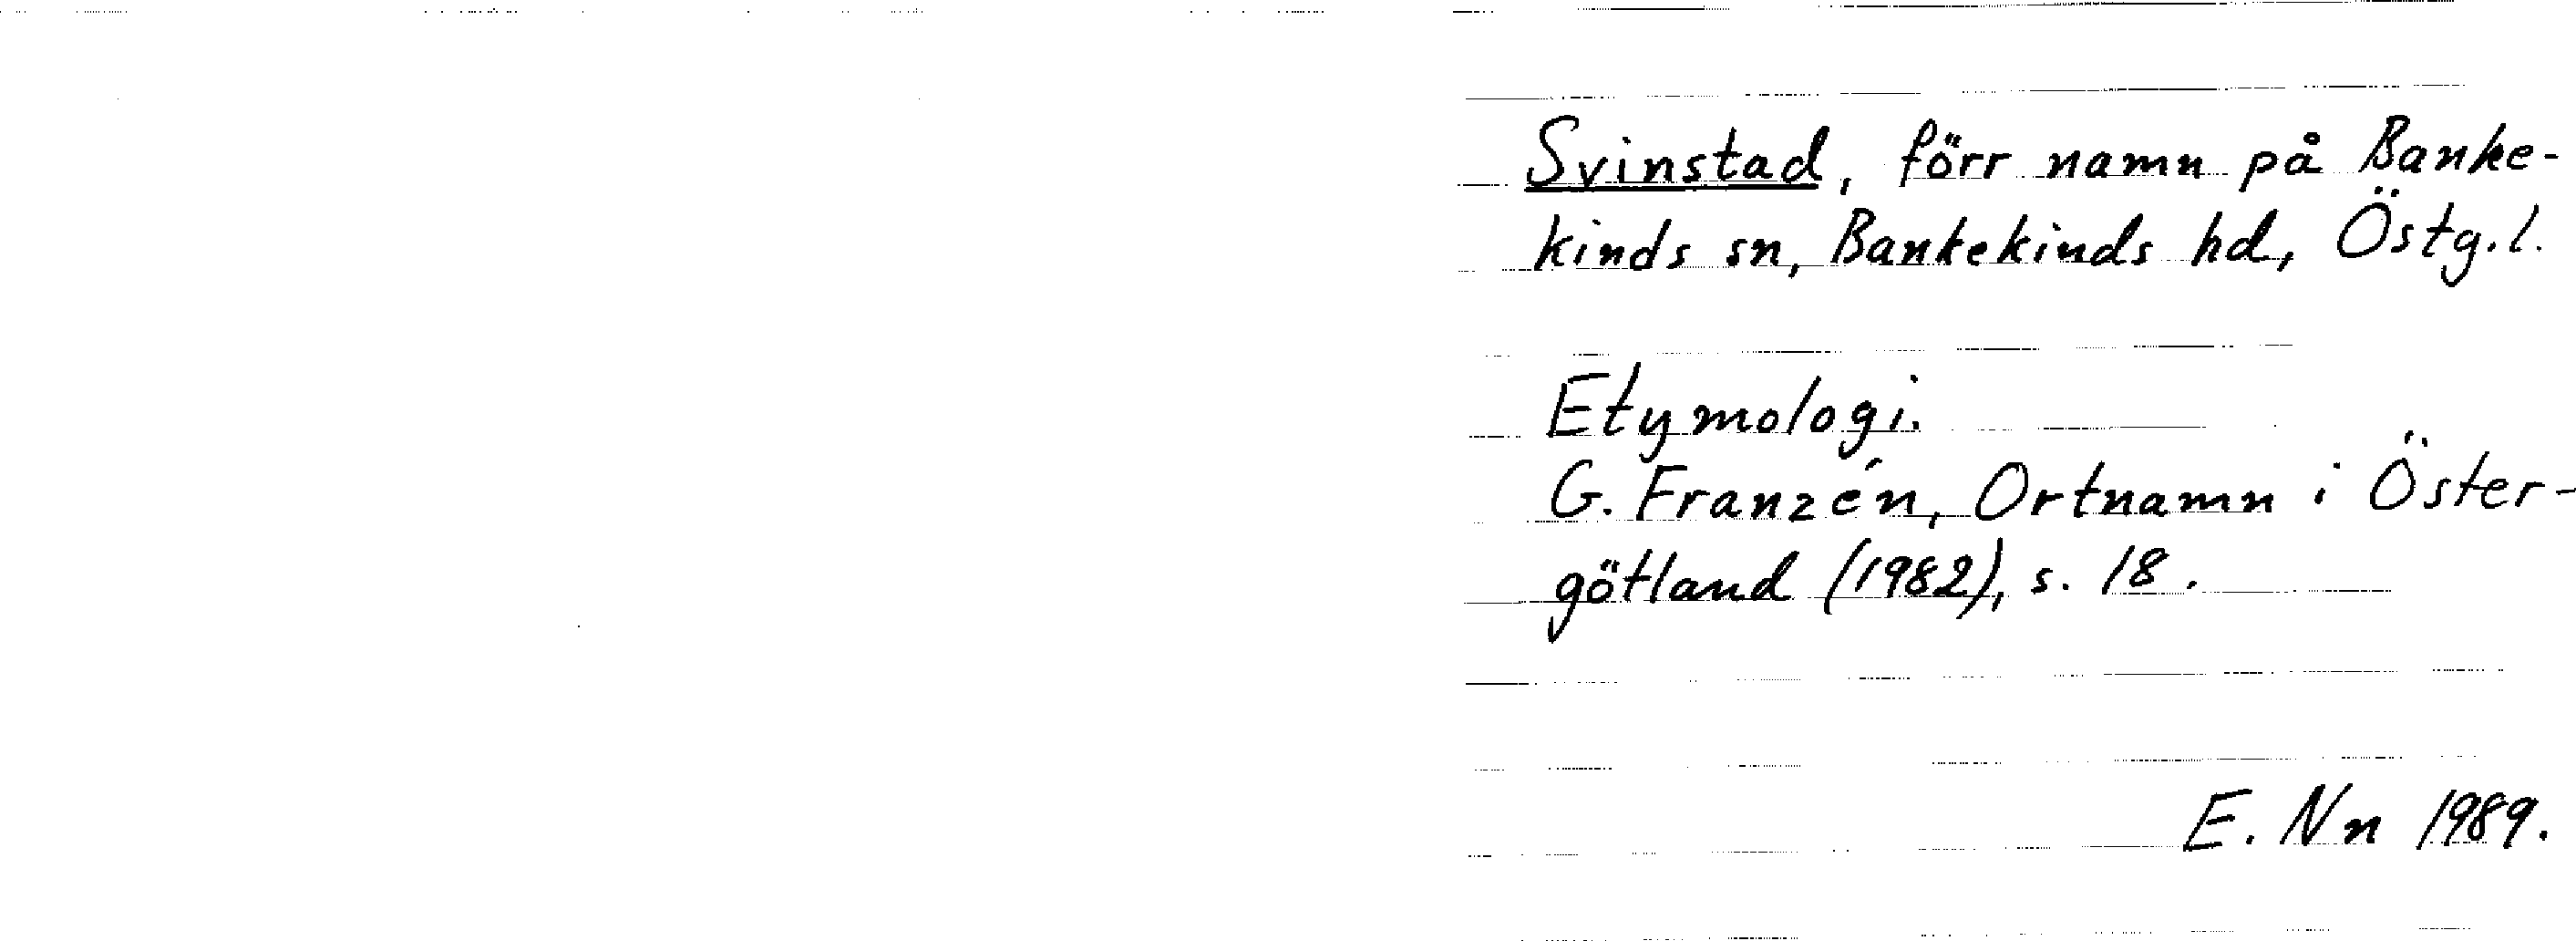 Svinstad, förr namn på Banke-
kinds sn, Bankekinds hd, Östg.l.
Etymologi.
G. Franzén, Ortnamn i Öster-
götland (1982), s. 18.
E. Nn 1989.